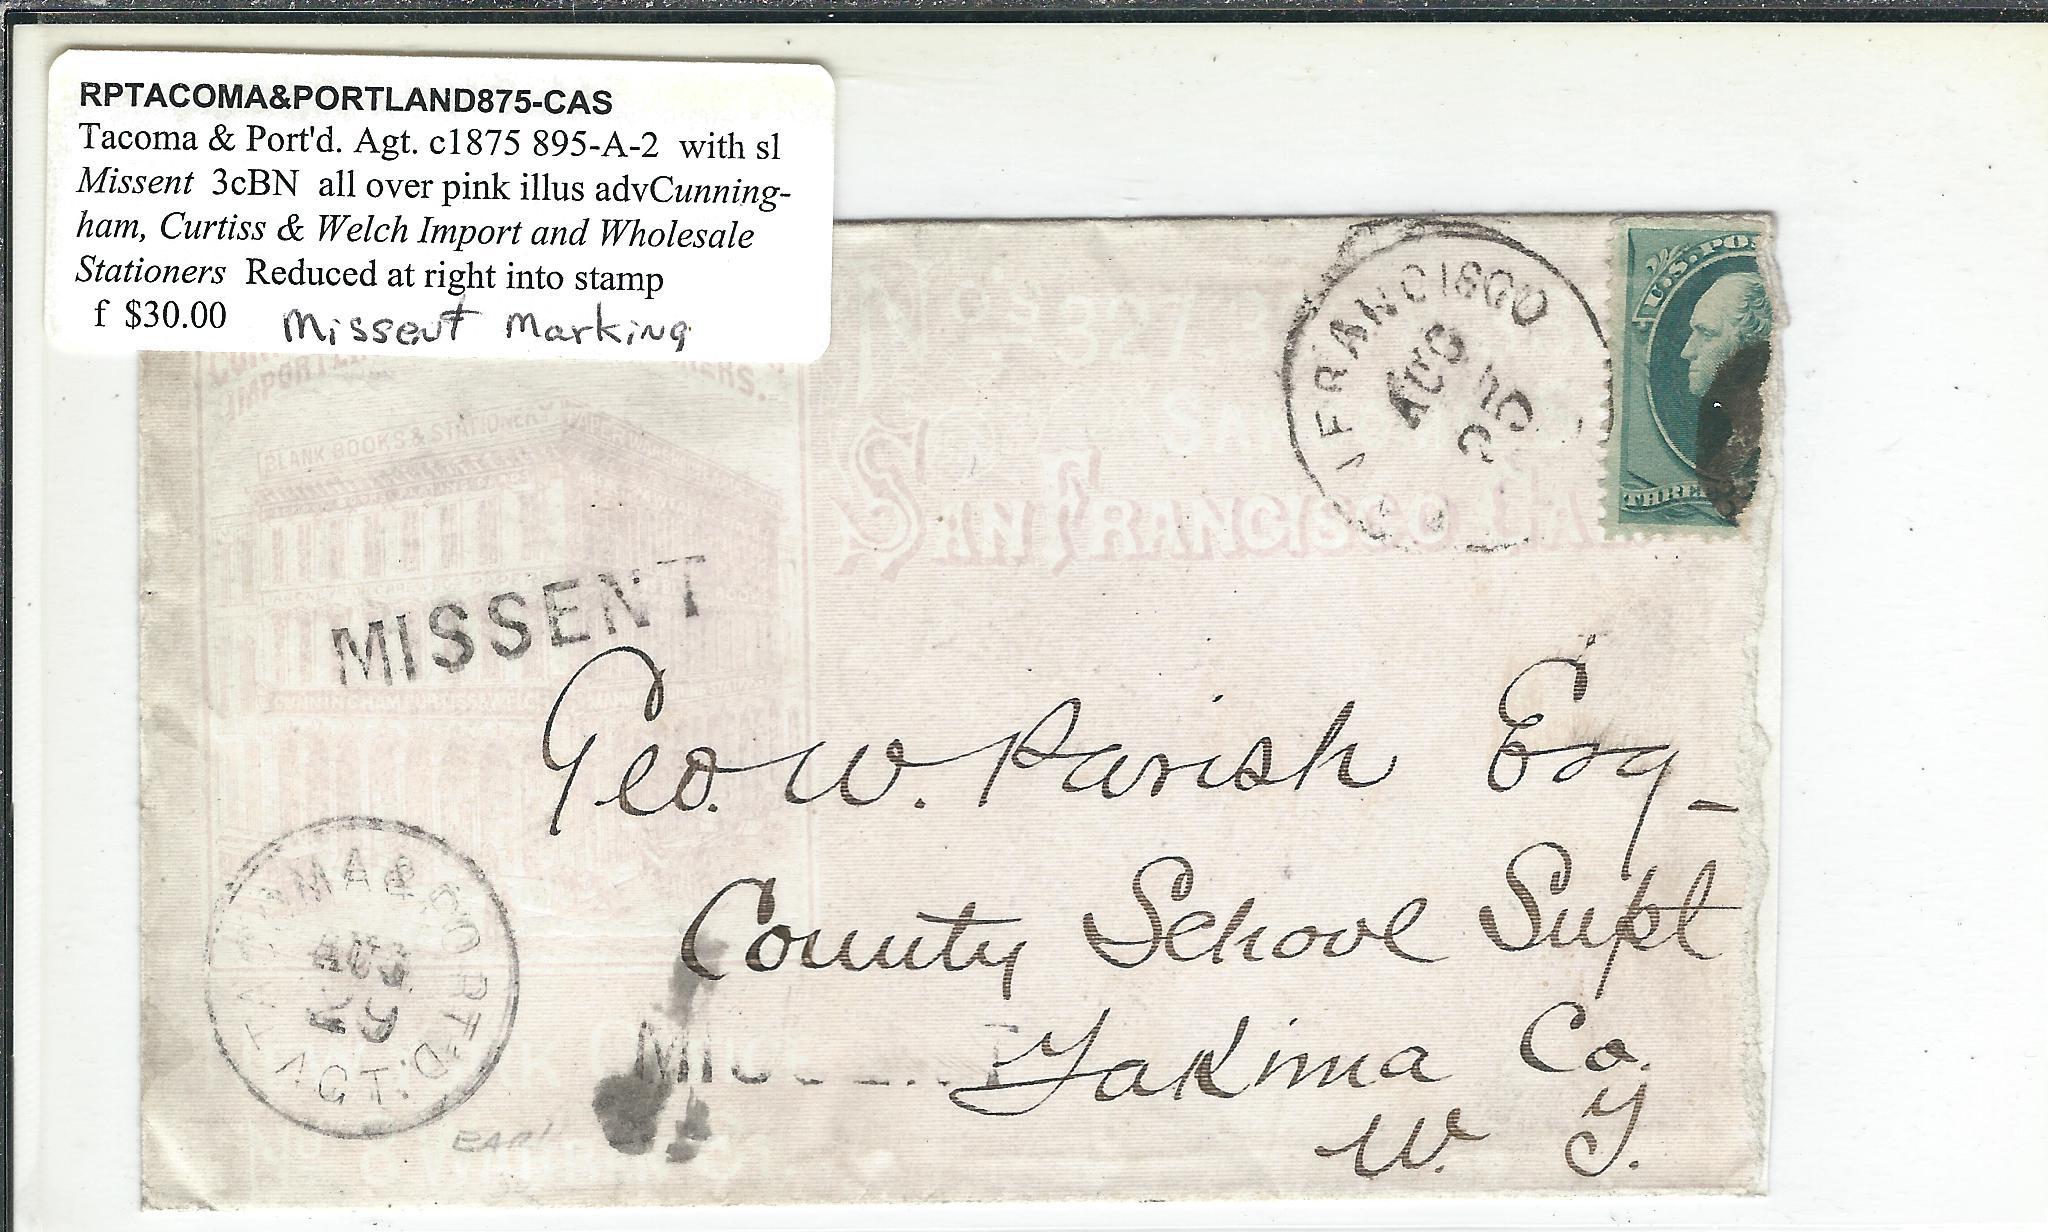 RPTACOMA&PORTLAND875-CAS
Tacoma & Port'd. Agt. c1875 895-A-2 with sl
Missent 3cBN all over pink illus advCunning-
ham, Curtiss & Welch Import and Wholesale
Stationers Reduced at right into stamp
f $30.00
Missent Marking
FRANCISCO
AUG
25
U.S. POS
THREE
IMPORTE
ERS.
BLANK BOOKS & STATIONERY
SAN FRANCISCO
MISSENT
Geo. W. Parish Esq
County School Supt
Yakima Co.
W. T.
TACOMA & PORT'D. AGT.
AUG
29